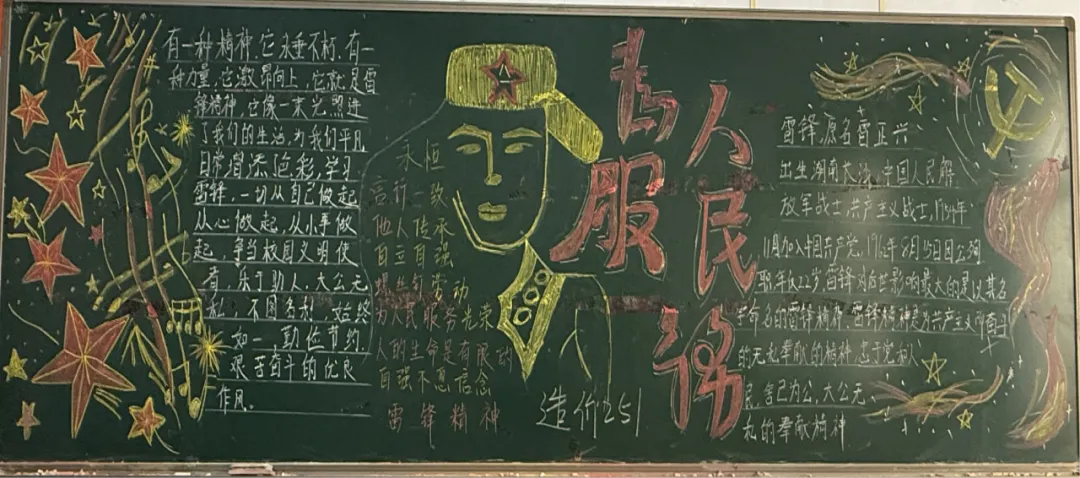 有一种精神，它永垂不朽，有一
种力量，它激昂向上，它就是雷
锋精神，它像一束光照进
了我们的生活，为我们平凡
日常增添色彩，学习
雷锋，一切从自己做起
从心做起，从小事做
起，争当校园文明使
者，乐于助人，大公无
私，不图名利，始终
如一，勤俭节约，
艰苦奋斗的优良
作风。
永恒
言行一致
他人传承
自立自强
劳动
为人民服务光荣
人的生命是有限的
自强不息信念
雷锋精神
造价251
为人民服务
雷锋，原名雷正兴
出生湖南长沙，中国人民解
放军战士，共产主义战士，
11月加入中国共产党，8月15日因公殉
职年仅22岁，雷锋影响最大的是以其名
字命名的雷锋精神，雷锋精神是为共产主义而奋斗
的无私奉献的精神，忠于党和人
民，舍己为公，大公无
私的奉献精神